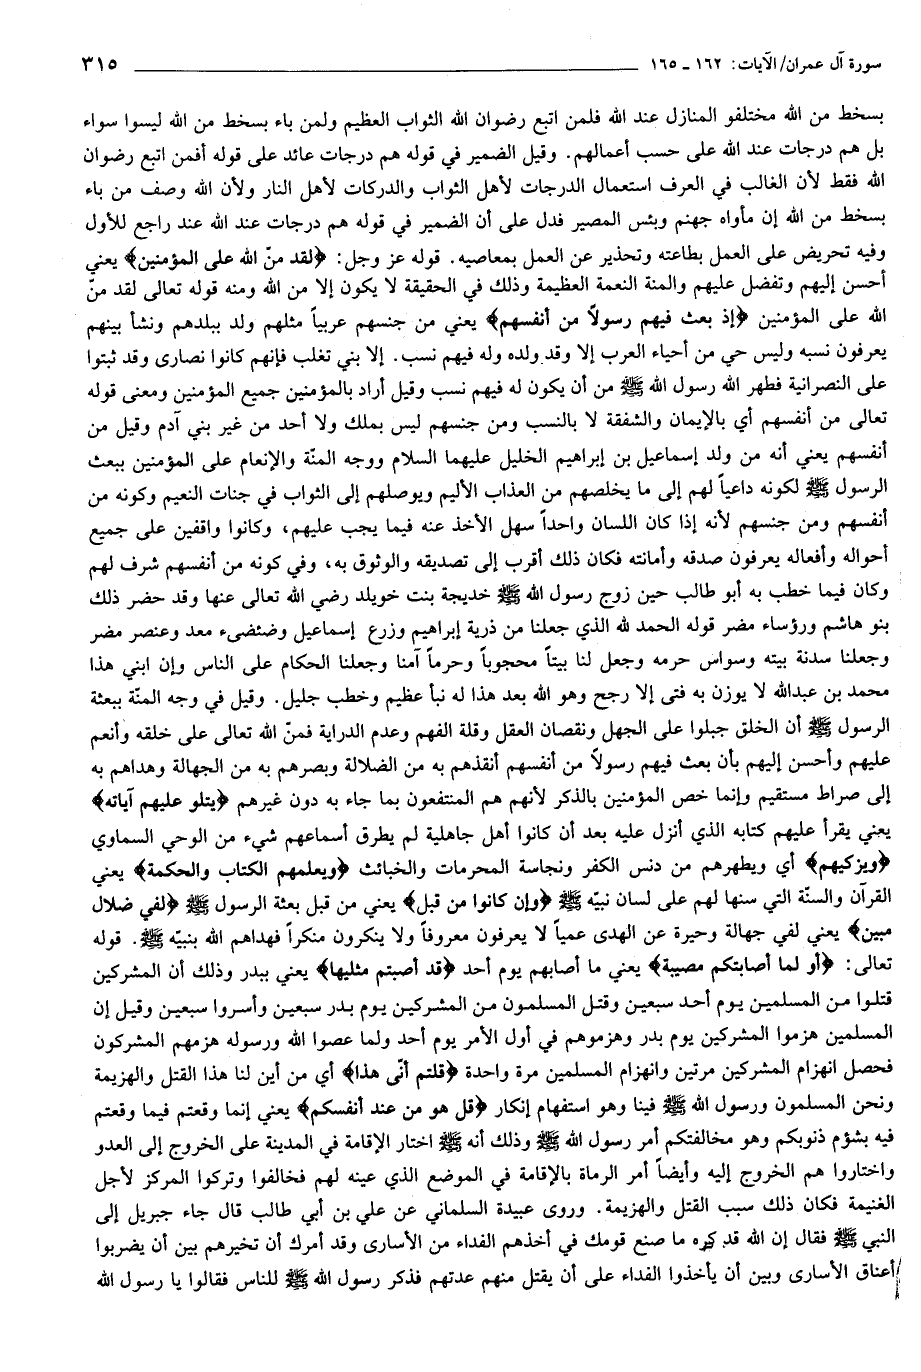 سورة آل عمران/ الآيات: ١٦٢ ـ ١٦٥ ٣١٥
بسخط من الله مختلفو المنازل عند الله فلمن اتبع رضوان الله الثواب العظيم ولمن باء بسخط من الله ليسوا سواء
بل هم درجات عند الله على حسب أعمالهم. وقيل الضمير في قوله هم درجات عائد على قوله أفمن اتبع رضوان
الله فقط لأن الغالب في العرف استعمال الدرجات لأهل الثواب والدركات لأهل النار ولأن الله وصف من باء
بسخط من الله إن مأواه جهنم وبئس المصير فدل على أن الضمير في قوله هم درجات عند الله عند راجع للأول
وفيه تحريض على العمل بطاعته وتحذير عن العمل بمعاصيه. قوله عز وجل: ﴿لقد منّ الله على المؤمنين﴾ يعني
أحسن إليهم وتفضل عليهم والمنة النعمة العظيمة وذلك في الحقيقة لا يكون إلا من الله ومنه قوله تعالى لقد منّ
الله على المؤمنين ﴿إذ بعث فيهم رسولاً من أنفسهم﴾ يعني من جنسهم عربياً مثلهم ولد ببلدهم ونشأ بينهم
يعرفون نسبه وليس حي من أحياء العرب إلا وقد ولده وله فيهم نسب. إلا بني تغلب فإنهم كانوا نصارى وقد ثبتوا
على النصرانية فطهر الله رسول الله ﷺ من أن يكون له فيهم نسب وقيل أراد بالمؤمنين جميع المؤمنين ومعنى قوله
تعالى من أنفسهم أي بالإيمان والشفقة لا بالنسب ومن جنسهم ليس بملك ولا أحد من غير بني آدم وقيل من
أنفسهم يعني أنه من ولد إسماعيل بن إبراهيم الخليل عليهما السلام ووجه المنّة والإنعام على المؤمنين ببعث
الرسول ﷺ لكونه داعياً لهم إلى ما يخلصهم من العذاب الأليم ويوصلهم إلى الثواب في جنات النعيم وكونه من
أنفسهم ومن جنسهم لأنه إذا كان اللسان واحداً سهل الأخذ عنه فيما يجب عليهم، وكانوا واقفين على جميع
أحواله وأفعاله يعرفون صدقه وأمانته فكان ذلك أقرب إلى تصديقه والوثوق به، وفي كونه من أنفسهم شرف لهم
وكان فيما خطب به أبو طالب حين زوج رسول الله ﷺ خديجة بنت خويلد رضي الله تعالى عنها وقد حضر ذلك
بنو هاشم ورؤساء مضر قوله الحمد لله الذي جعلنا من ذرية إبراهيم وزرع إسماعيل وضئضىء معد وعنصر مضر
وجعلنا سدنة بيته وسواس حرمه وجعل لنا بيتاً محجوباً وحرماً آمنا وجعلنا الحكام على الناس وإن ابني هذا
محمد بن عبدالله لا يوزن به فتى إلا رجح وهو الله بعد هذا له نبأ عظيم وخطب جليل. وقيل في وجه المنّة ببعثة
الرسول ﷺ أن الخلق جبلوا على الجهل ونقصان العقل وقلة الفهم وعدم الدراية فمنّ الله تعالى على خلقه وأنعم
عليهم وأحسن إليهم بأن بعث فيهم رسولاً من أنفسهم أنقذهم به من الضلالة وبصرهم به من الجهالة وهداهم به
إلى صراط مستقيم وإنما خص المؤمنين بالذكر لأنهم هم المنتفعون بما جاء به دون غيرهم ﴿يتلو عليهم آياته﴾
يعني يقرأ عليهم كتابه الذي أنزل عليه بعد أن كانوا أهل جاهلية لم يطرق أسماعهم شيء من الوحي السماوي
﴿ويزكيهم﴾ أي ويطهرهم من دنس الكفر ونجاسة المحرمات والخبائث ﴿ويعلمهم الكتاب والحكمة﴾ يعني
القرآن والسنّة التي سنها لهم على لسان نبيّه ﷺ ﴿وإن كانوا من قبل﴾ يعني من قبل بعثة الرسول ﷺ ﴿لفي ضلال
مبين﴾ يعني لفي جهالة وحيرة عن الهدى عمياً لا يعرفون معروفاً ولا ينكرون منكراً فهداهم الله بنبيّه ﷺ. قوله
تعالى: ﴿أو لما أصابتكم مصيبة﴾ يعني ما أصابهم يوم أحد ﴿قد أصبتم مثليها﴾ يعني ببدر وذلك أن المشركين
قتلوا من المسلمين يوم أحد سبعين وقتل المسلمون من المشركين يوم بدر سبعين وأسروا سبعين وقيل إن
المسلمين هزموا المشركين يوم بدر وهزموهم في أول الأمر يوم أحد ولما عصوا الله ورسوله هزمهم المشركون
فحصل انهزام المشركين مرتين وانهزام المسلمين مرة واحدة ﴿قلتم أنّى هذا﴾ أي من أين لنا هذا القتل والهزيمة
ونحن المسلمون ورسول الله ﷺ فينا وهو استفهام إنكار ﴿قل هو من عند أنفسكم﴾ يعني إنما وقعتم فيما وقعتم
فيه بشؤم ذنوبكم وهو مخالفتكم أمر رسول الله ﷺ وذلك أنه ﷺ اختار الإقامة في المدينة على الخروج إلى العدو
واختاروا هم الخروج إليه وأيضاً أمر الرماة بالإقامة في الموضع الذي عينه لهم فخالفوا وتركوا المركز لأجل
الغنيمة فكان ذلك سبب القتل والهزيمة. وروى عبيدة السلماني عن علي بن أبي طالب قال جاء جبريل إلى
النبي ﷺ فقال إن الله قد كره ما صنع قومك في أخذهم الفداء من الأسارى وقد أمرك أن تخيرهم بين أن يضربوا
أعناق الأسارى وبين أن يأخذوا الفداء على أن يقتل منهم عدتهم فذكر رسول الله ﷺ للناس فقالوا يا رسول الله